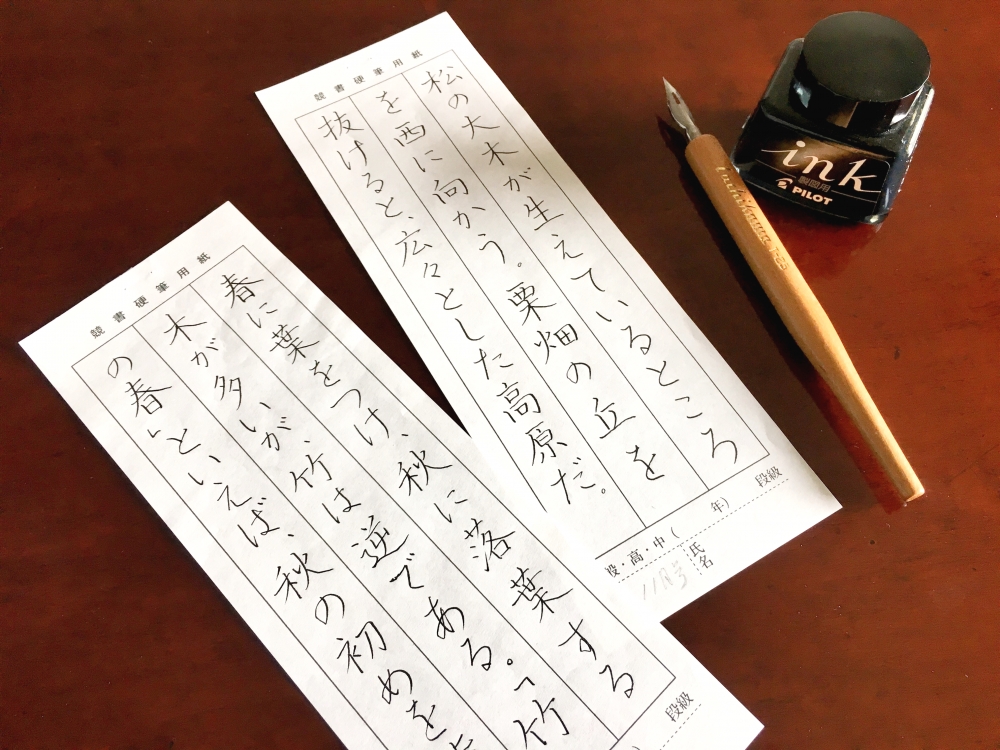 競書硬筆用紙
松の大木が生えているところ
を西に向かう。栗畑の丘を
抜けると、広々とした高原だ。
段級
・高・中( 年)
氏名
11月号
競書硬筆用紙
春に葉をつけ、秋に落葉する
木が多いが、竹は逆である。「竹
の春」といえば、秋の初めを
段級
ink
製図用
PILOT